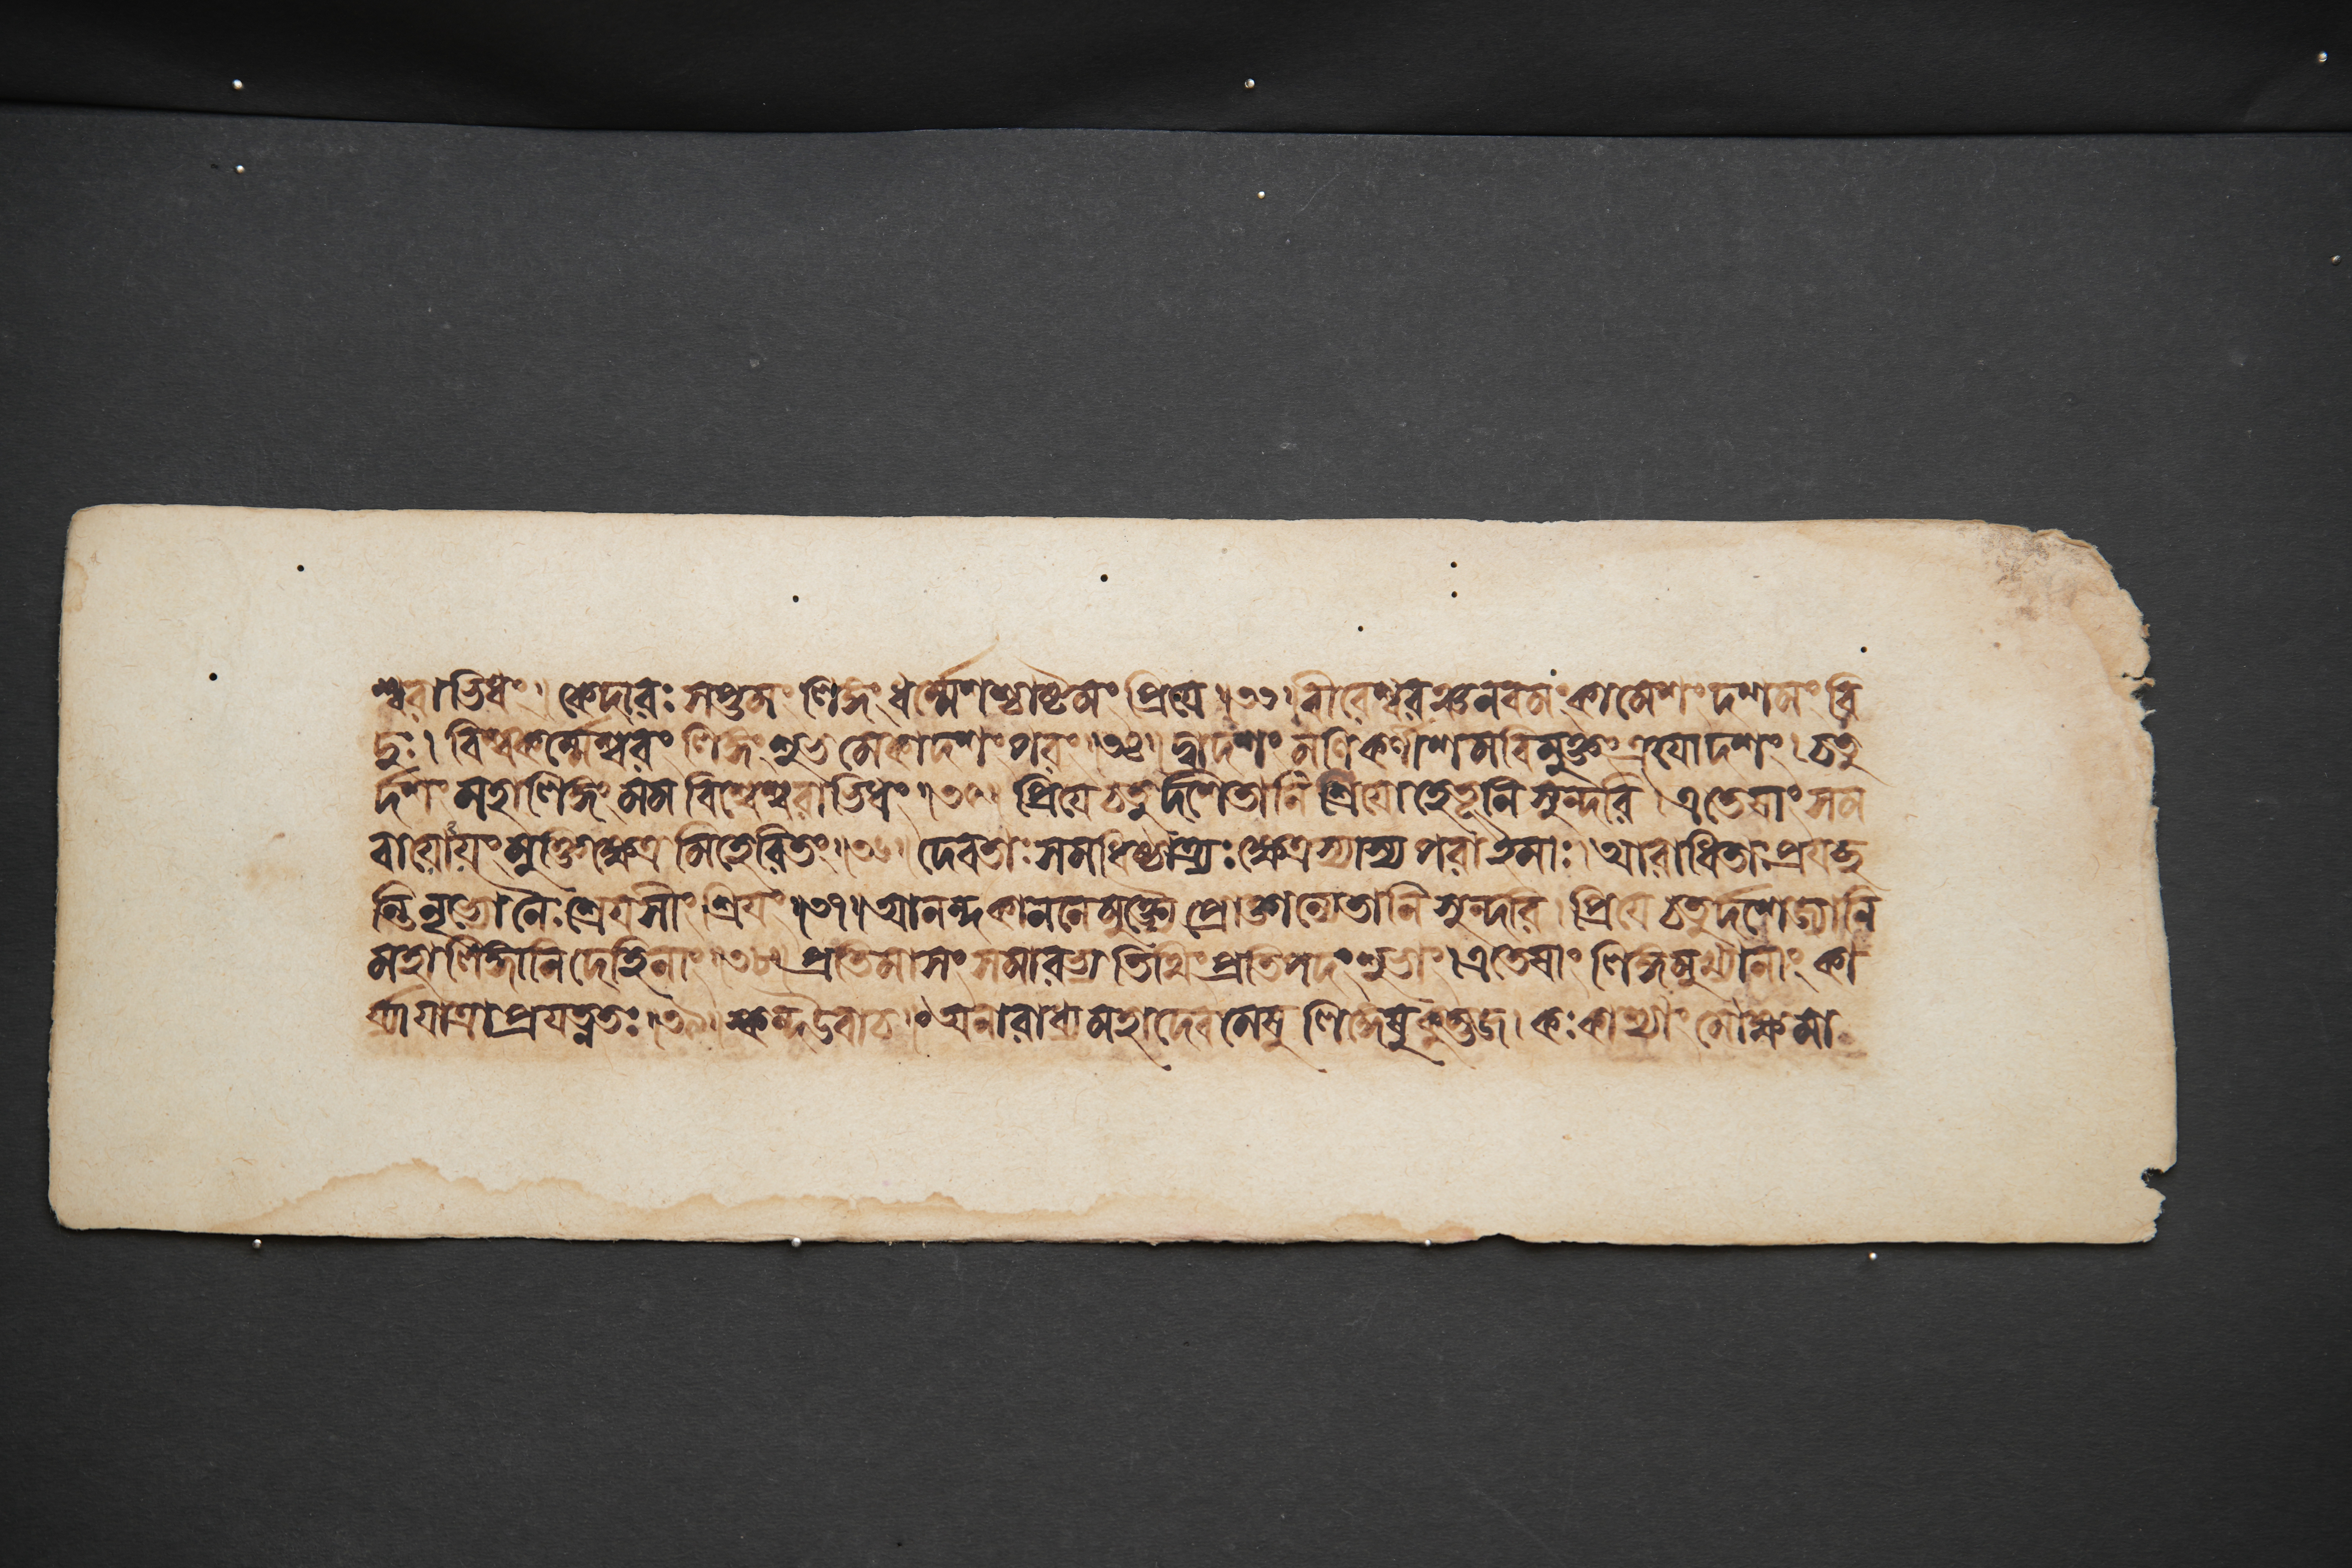 শ্বরাভিধং। কেদারঃ সপ্তমং লিঙ্গং ধর্ম্মেশশ্চাষ্টমং প্রিয়ে॥৩৩। বীরেশ্বরঞ্চ নবমং কামেশং দশমং বি
দুঃ। বিশ্বকর্ম্মেশ্বরং লিঙ্গং শুভমেকাদশং পরং।৩৪। দ্বাদশং মণিকর্ণীশমবিমুক্তং ত্রয়োদশং। চতু
র্দশং মহালিঙ্গং মম বিশ্বেশ্বরাভিধং॥৩৫। প্রিয়ে চতুর্দশৈতানি শ্রিয়োহেতূনি সুন্দরি। এতেষাং সম
বায়োয়ং মুক্তিক্ষেত্রমিহেরিতং॥৩৬। দেবতাঃ সমধিষ্ঠাত্র্যঃ ক্ষেত্রস্যাস্য পরা ইমাঃ। আরাধিতাঃ প্রযচ্ছ
ন্তি নৃভ্যো নৈঃশ্রেয়সীং শ্রিয়ং॥৩৭॥ আনন্দকাননে মুক্ত্যৈ প্রোক্তান্যেতানি সুন্দরি। প্রিয়ে চতুর্দশেজ্যানি
মহালিঙ্গানি দেহিনাং॥৩৮। প্রতিমাসং সমারভ্য তিথিং প্রতিপদং শুভাং। এতেষাং লিঙ্গমুখ্যানাং কা
র্য্যা যাত্রা প্রযত্নতঃ।৩৯। স্কন্দ উবাচ।॰ অনারাধ্য মহাদেবমেষু লিঙ্গেষু কুম্ভজ। কঃ কাশ্যাং মোক্ষমা